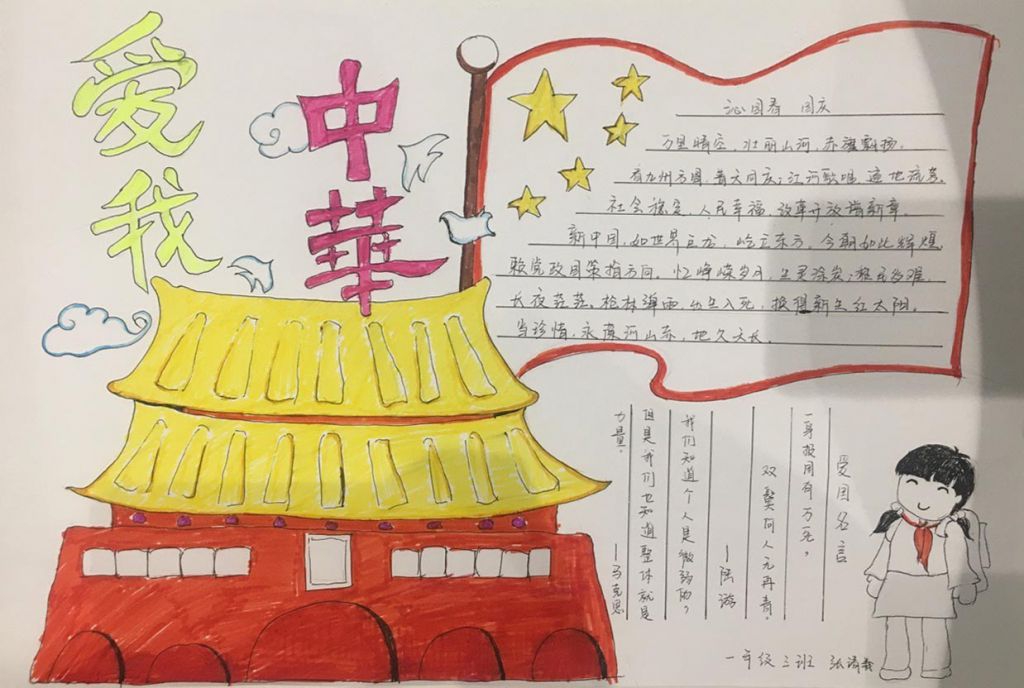 爱我
中華
沁园春 国庆
万里晴空，壮丽山河，赤旗飘扬。
看九州方圆，普天同庆；江河歌唱，遍地流芳。
社会稳定，人民幸福，改革开放谱新章。
新中国，如世界巨龙，屹立东方。今朝如此辉煌，
赖党政国策指方向。忆峥嵘岁月，生灵涂炭；
长夜茫茫。枪林弹雨，出生入死，换得新生红太阳。
当珍惜，永葆河山赤，地久天长。
爱国名言
一身报国有万死，
双鬓向人无再青。
—陆游
我们知道个人是微弱的，
但是我们也知道整体就是
力量。
—马克思
一年级三班 张